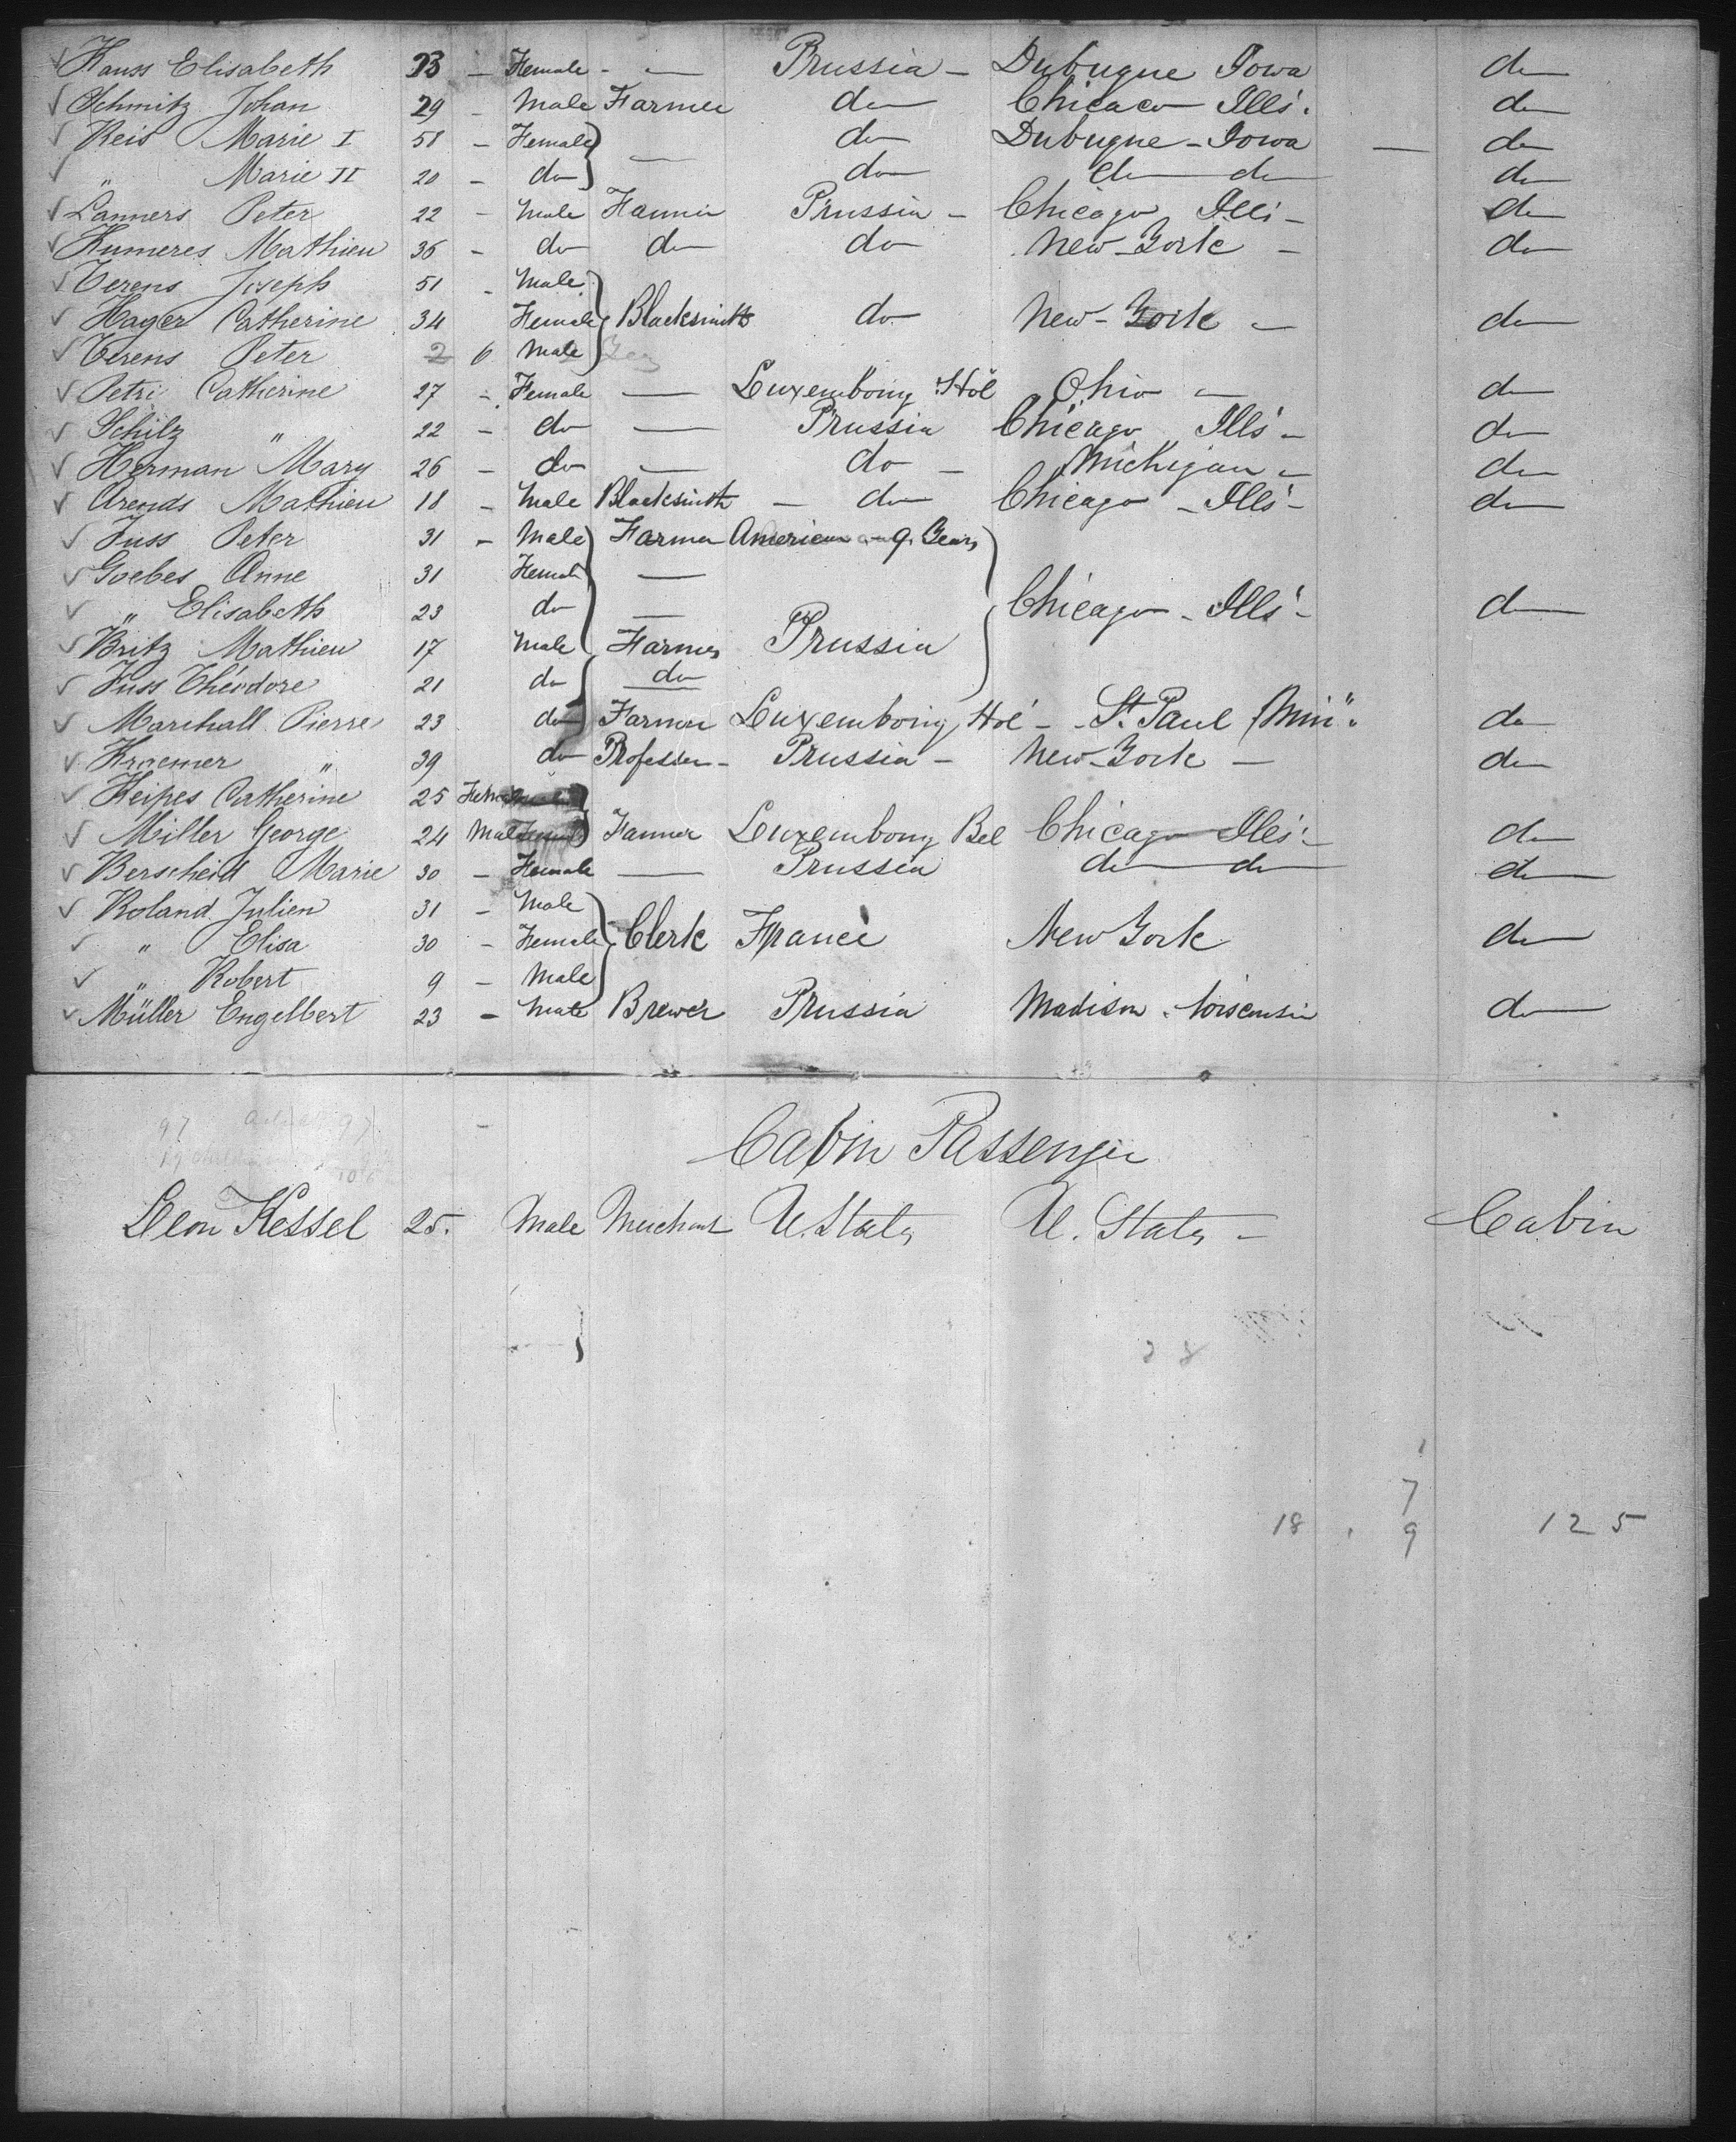 Hauss Elisabeth 23 - Female - — Prussia - Dubuque Iowa do
Schmitz Johan 29 - Male Farmer do Chicaco Ills. do
Reis Marie I 51 - Female — do Dubuque - Iowa — do
" Marie II 20 - do do do do do
Lanners Peter 22 - Male Farmer Prussia - Chicago Ills - do
Humeres Mathieu 36 - do do do New-York - do
Terens Joseph 51 - Male
Hager Catherine 34 Female Blacksmith do New-York - do
Terens Peter 2 6 Male
Petri Catherine 27 - Female — Luxembourg Hol Ohio - do
Schilz " 22 - do — Prussia Chicago Ills - do
Herman Mary 26 - do — do - Michigan - do
Arends Mathieu 18 - Male Blacksmith - do Chicago - Ills - do
Fuss Peter 31 - Male Farmer American 9 Years
Goebes Anne 31 Female —
" Elisabeth 23 do — Chicago - Ills - do
Britz Mathieu 17 Male Farmer Prussia
Fuss Théodore 21 do do
Marchall Pierre 23 do Farmer Luxembourg Hol - St. Paul Min" do
Kraemer " 39 do Professor - Prussia - New-York - do
Heipes Catherine 25 Female
Miller George 24 Male Farmer Luxembourg Bel Chicago Ills - do
Berscheid Marie 30 - Female — Prussia do do do
Roland Julien 31 - Male
" Elisa 30 - Female Clerk France New York do
" Robert 9 - Male
Müller Engelbert 23 - Male Brewer Prussia Madison - Wisconsin do
97
Cabin Passenger
Leon Kessel 25. Male Merchant U. States U. States - Cabin
28
7
18 9 125